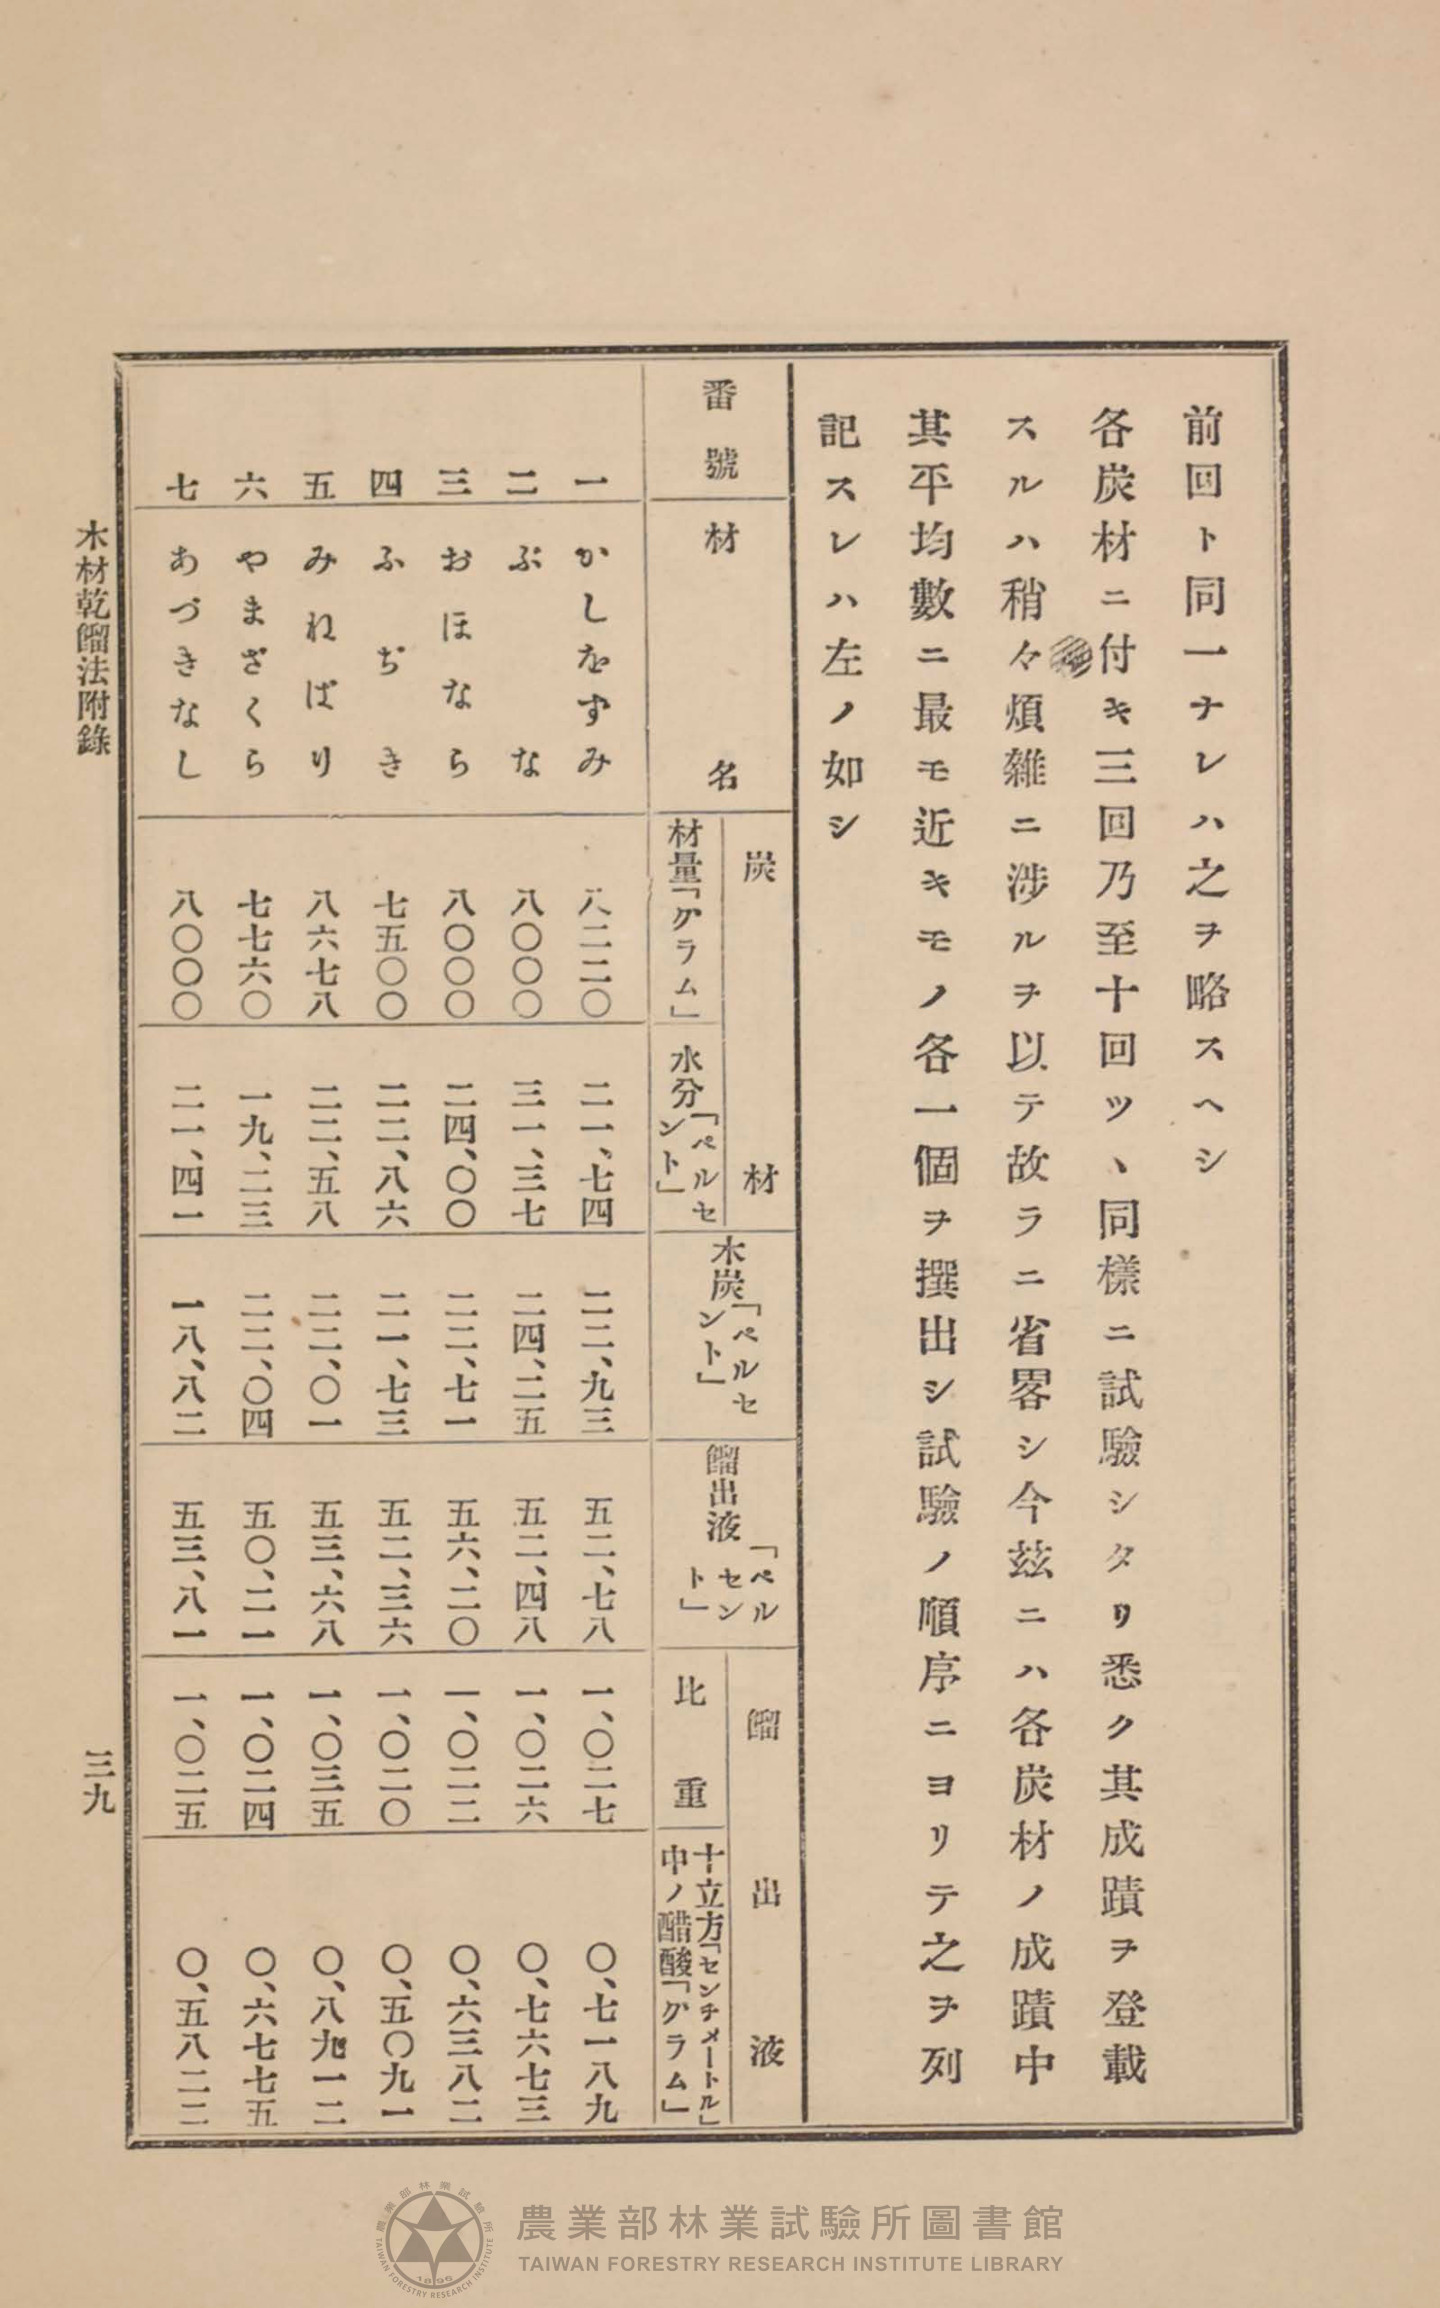 前回ト同一ナレハ之ヲ略スヘシ
各炭材ニ付キ三回乃至十回ツヽ同樣ニ試驗シタリ悉ク其成蹟ヲ登載
スルハ稍々煩雜ニ涉ルヲ以テ故ラニ省畧シ今玆ニハ各炭材ノ成蹟中
其平均數ニ最モ近キモノ各一個ヲ撰出シ試驗ノ順序ニヨリテ之ヲ列
記スレハ左ノ如シ
番號 材名 炭材 材量「グラム」 水分「ペルセント」 木炭「ペルセント」 餾出液「ペルセント」 餾出液 比重 十立方「センチメートル」中ノ醋酸「グラム」
一 かしをずみ 八二二〇 二一、七四 二二、九三 五二、七八 一、〇二七 〇、七一八九
二 ぶな 八〇〇〇 三一、三七 二四、二五 五二、四八 一、〇二六 〇、七六七三
三 おほなら 八〇〇〇 二四、〇〇 二二、七一 五六、二〇 一、〇二二 〇、六三八二
四 ふぢき 七五〇〇 二二、八六 二一、七三 五二、三六 一、〇二〇 〇、五〇九一
五 みねばり 八六七八 二二、五八 二二、〇一 五三、六八 一、〇三五 〇、八九一二
六 やまざくら 七七六〇 一九、二三 二二、〇四 五〇、二一 一、〇二四 〇、六七七五
七 あづきなし 八〇〇〇 二一、四一 一八、八二 五三、八一 一、〇二五 〇、五八二二
木材乾餾法附錄
三九
農業部林業試驗所圖書館
TAIWAN FORESTRY RESEARCH INSTITUTE LIBRARY
農業部林業試驗所
TAIWAN FORESTRY RESEARCH INSTITUTE
1896